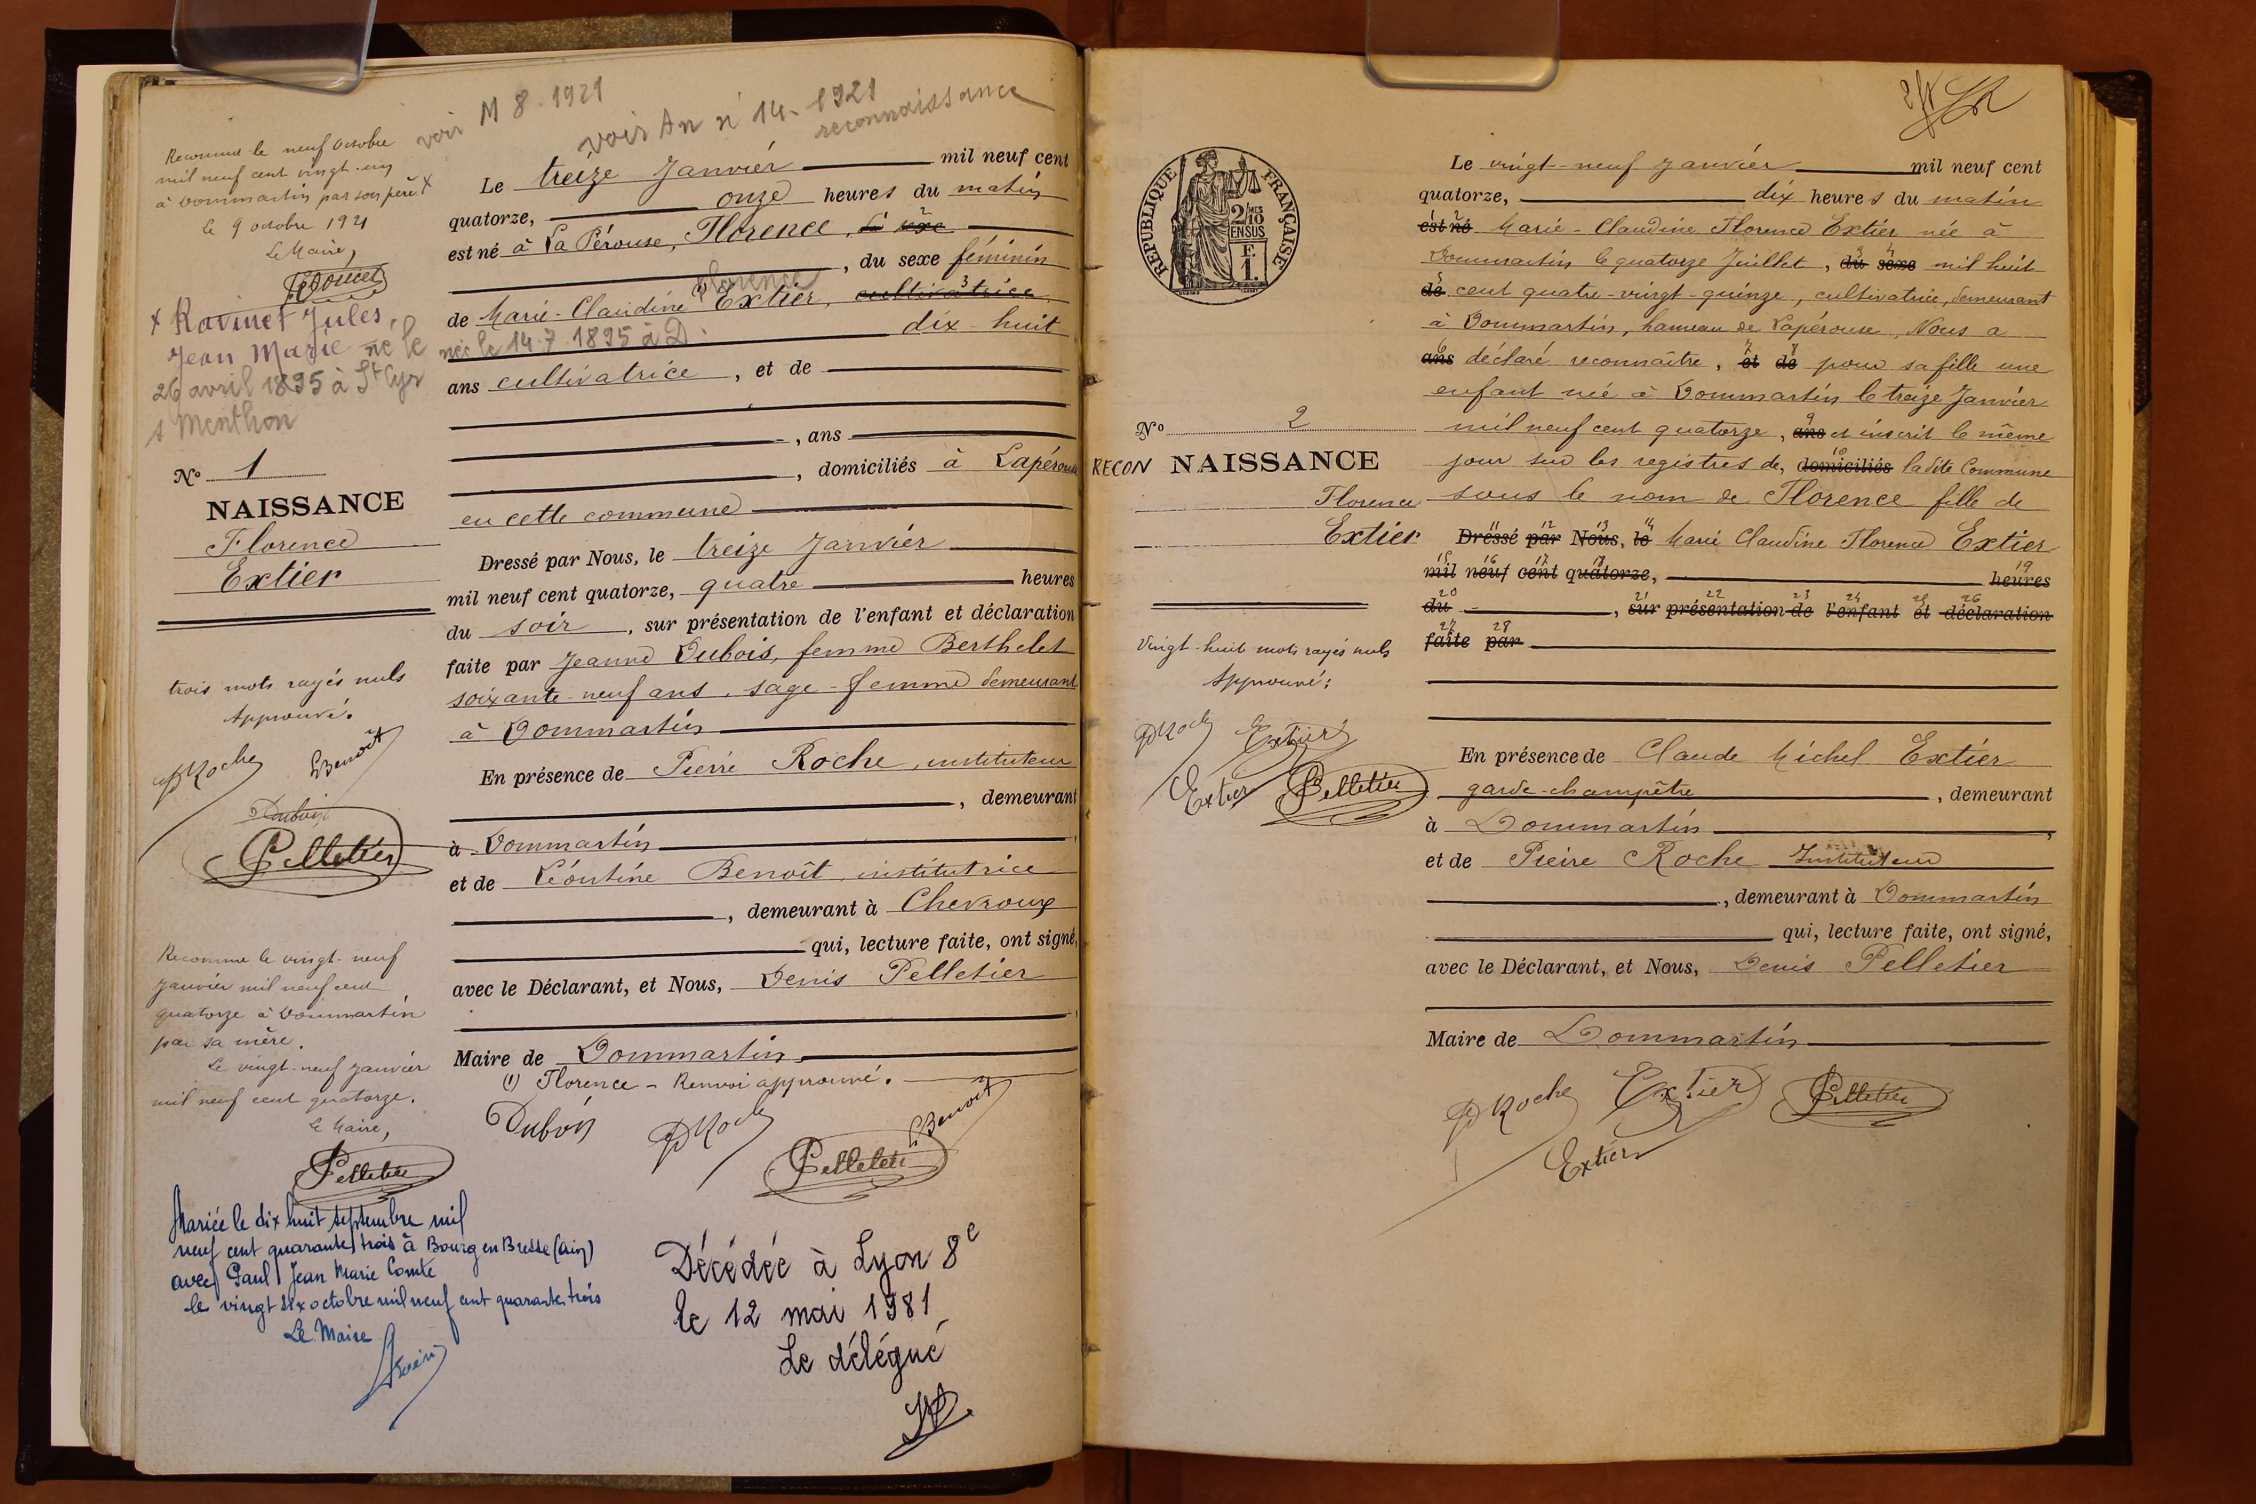 voir M 8. 1921
voir An n° 14 - 1921
reconnaissance
Reconnue le neuf Octobre
mil neuf cent vingt-un
à Dommartin par son père X
le 9 octobre 1921
Le Maire,
X Ravinet Jules,
Jean Marie né le
26 avril 1895 à St Cyr
s Menthon
N° 1
NAISSANCE
Florence
Extier
trois mots rayés nuls
Approuvé.
PRoche LBenoît
Dubois
Pelletier
Reconnue le vingt-neuf
janvier mil neuf cent
quatorze à Dommartin
par sa mère.
Le vingt-neuf janvier
mil neuf cent quatorze.
Le Maire,
Pelletier
Mariée le dix huit septembre mil
neuf cent quarante trois à Bourg en Bresse (Ain)
avec Paul Jean Marie Comte
le vingt six octobre mil neuf cent quarante trois
Le Maire
Le treize Janvier mil neuf cent
quatorze, onze heures du matin
est né à La Pérouse, Florence, du sexe
, du sexe féminin
florence
de Marie-Claudine (1) Extier, cultivatrice 3
née le 14.7.1895 à D. dix-huit
ans cultivatrice, et de
, ans
, domiciliés à Lapérouse
en cette commune
Dressé par Nous, le treize Janvier
mil neuf cent quatorze, quatre heures
du soir, sur présentation de l'enfant et déclaration
faite par Jeanne Dubois, femme Berthelet
soixante-neuf ans, sage-femme demeurant
à Dommartin
En présence de Pierre Roche, instituteur
, demeurant
à Dommartin
et de Léontine Benoît, institutrice
, demeurant à Chevroux
qui, lecture faite, ont signé,
avec le Déclarant, et Nous, Denis Pelletier
Maire de Dommartin
(1) Florence - Renvoi approuvé.
Dubois PRoche LBenoît
Pelletier
Décédée à Lyon 8e
le 12 mai 1981
Le délégué
RÉPUBLIQUE FRANÇAISE
2/10 MES
EN SUS
F.
1.
N° 2
RECON NAISSANCE
Florence
Extier
Vingt-huit mots rayés nuls
Approuvé:
PRoche Extier
Extier Pelletier
Le vingt-neuf janvier mil neuf cent
quatorze, dix heures du matin
1 2 est né Marie-Claudine Florence Extier née à
Dommartin le quatorze Juillet, 3 4 du sexe mil huit
5 de cent quatre-vingt-quinze, cultivatrice, demeurant
à Dommartin, hameau de Lapérouse, Nous a
6 ans déclaré reconnaître, 7 8 et de pour sa fille une
enfant née à Dommartin le treize Janvier
mil neuf cent quatorze, 9 ans et inscrit le même
jour sur les registres de, 10 domiciliés ladite Commune
sous le nom de Florence fille de
11 12 13 14 Dressé par Nous, le Marie Claudine Florence Extier
15 16 17 18 19 mil neuf cent quatorze, heures
20 21 22 23 24 25 26 du , sur présentation de l'enfant et déclaration
27 28 faite par
En présence de Claude Michel Extier
garde-champêtre , demeurant
à Dommartin
et de Pierre Roche Instituteur
, demeurant à Dommartin
qui, lecture faite, ont signé,
avec le Déclarant, et Nous, Denis Pelletier
Maire de Dommartin
PRoche Extier Pelletier
Extier